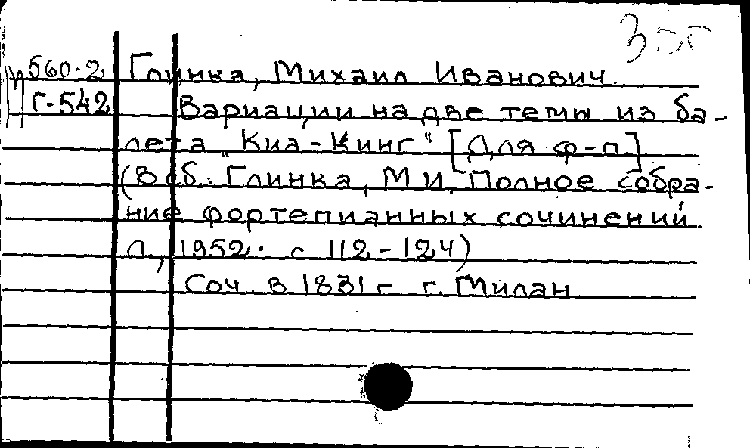 560-2 Глинка, Михаил Иванович.
Г-542 Вариации на две темы из ба-
лета „Киа-Кинг“ [Для ф-п]
(В сб.: Глинка, М.И. Полное собра-
ние фортепианных сочинений
Л., 1952. с 112-124)
Соч. в 1831 г г. Милан